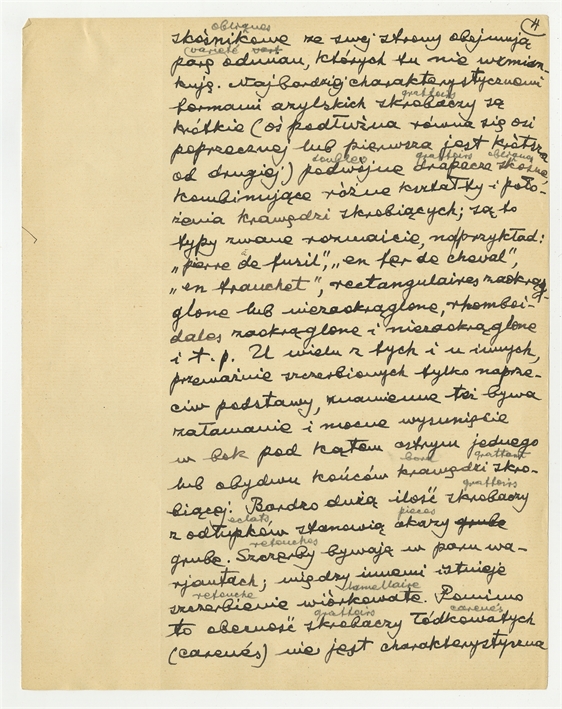 4
obliques
skośnikowe ze swej strony obejmują
(variété vart
parę odmian, których tu nie wzmian-
kuję. Najbardziej charakterystycznemi
grattoirs
formami azylskich skrobaczy są
krótkie (oś podłużna równa się osi
poprzecznej lub pierwsza jest krótsza
doubles grattoirs obliques
od drugiej) podwójne drapacze skośne,
kombinujące różne kształty i poło-
żenia krawędzi skrobiących; są to
typy zwane rozmaicie, naprzykład:
„pierre de fusil", „en fer de cheval",
„en tranchet", rectangulaires zaokrą-
glone lub niezaokrąglone, rhomboi-
dales zaokrąglone i niezaokrąglone
i t. p. U wielu z tych i u innych,
przeważnie szczerbionych tylko naprze-
ciw podstawy, znamienne też bywa
załamanie i mocne wysunięcie
w bok pod kątem ostrym jednego
bord grattant
lub obydwu końców krawędzi skro-
grattoirs
biącej. Bardzo dużą ilość skrobaczy
éclats pièces
z odłupków stanowią okazy grube
retouches
grube. Szczerby bywają w paru wa-
rjantach; między innemi istnieje
retouche lamellaire
szczerbienie wiórkowate. Pomimo
grattoirs carenés
to obecność skrobaczy łódkowatych
(carenés) nie jest charakterystyczna